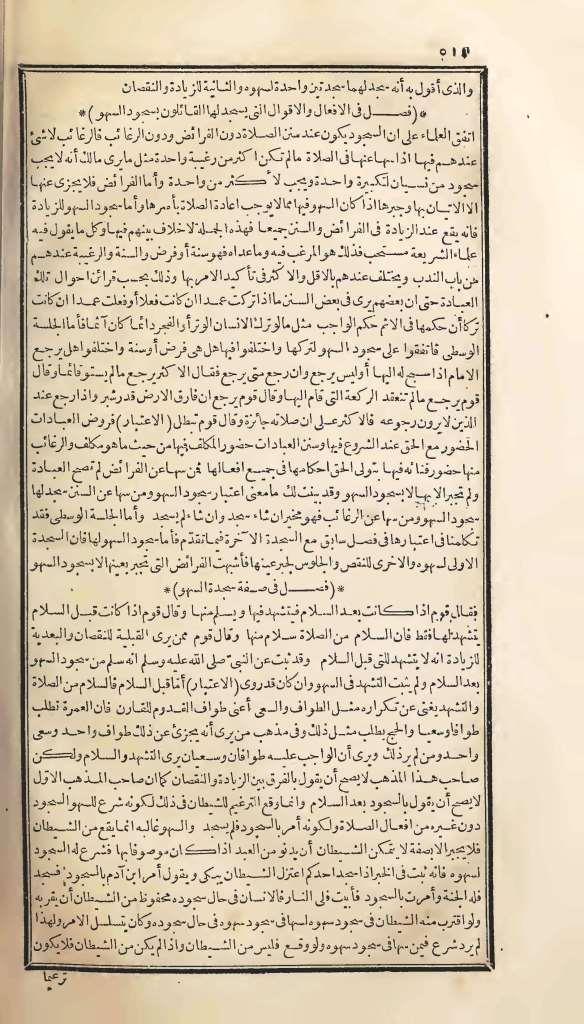 ٥١٢
والذى أقول به أنه يسجد لهما سجدتين واحدة لسهوه والثانية للزيادة والنقصان
*(فصل فى الافعال والاقوال التى يسجد لها القائلون بسجود السهو)*
اتفق العلماء على ان السجود يكون عند سنن الصلاة دون الفرائض ودون الرغائب فالرغائب لاشئ
عندهم فيها اذا سها عنها فى الصلاة مالم تكن اكثر من رغيبة واحدة مثل مايرى مالك أنه لا يجب
سجود من نسيان تكبيرة واحدة ويجب لأكثر من واحدة وأما الفرائض فلا يجزى عنها
الا الاتيان بها وجبرها اذا كان السهو فيها مما لا يوجب اعادة الصلاة بأسرها وأما سجود السهو للزيادة
فانه يقع عند الزيادة فى الفرائض والسنن جميعا فهذه الجملة لا خلاف بينهم فيها وكل ما يقول فيه
علماء الشريعة مستحب فذلك هو المرغب فيه وماعداه فهو سنة أو فرض والسنة والرغيبة عندهم
من باب الندب ويختلف عندهم بالاقل والاكثر فى تأكيد الامر بها وذلك بحسب قرائن احوال تلك
العبادة حتى ان بعضهم يرى فى بعض السنن ما اذا تركت عمدا ان كانت فعلا أو فعلت عمدا ان كانت
تركا أن حكمها فى الاثم حكم الواجب مثل مالو ترك الانسان الوتر أو الفجر دائما كان آثما فأما الجلسة
الوسطى فاتفقوا على سجود السهو لتركها واختلفوا فيها هل هى فرض أو سنة واختلفوا هل يرجع
الامام اذا سبح له اليها أو ليس يرجع وان رجع متى يرجع فقال الاكثر يرجع مالم يستو قائما وقال
قوم يرجع مالم تنعقد الركعة التى قام اليها وقال قوم يرجع ان فارق الارض قدر شبر واذا رجع عند
الذين لا يرون رجوعه فالاكثر على ان صلاته جائزة وقال قوم تبطل (الاعتبار) فروض العبادات
الحضور مع الحق عند الشروع فيها وسنن العبادات حضور المكلف فيها من حيث ما هو مكلف والرغائب
منها حضور فنائه فيها بتولى الحق احكامها فى جميع افعالها فمن سها عن الفرائض لم تصح العبادة
ولم تنجبر الا بها لا بسجود السهو وقد بينت لك ما معنى اعتبار سجود السهو ومن سها عن السنن سجد لها
سجود السهو ومن سها عن الرغائب فهو مخير ان شاء سجد وان شاء لم يسجد وأما الجلسة الوسطى فقد
تكلمنا فى اعتبارها فى فصل سابق مع السجدة الآخرة فيما تقدم فأما سجود السهو لها فان السجدة
الاولى لسهوه والاخرى للنقص والجلوس لجبر عينها فأشبهت الفرائض التى تنجبر بعينها لا بسجود السهو
*(فصل فى صفة سجدة السهو)*
فقال قوم اذا كانت بعد السلام فيتشهد فيها ويسلم منها وقال قوم اذا كانت قبل السلام
يتشهد لها فقط فان السلام من الصلاة سلام منها وقال قوم ممن يرى القبلية للنقصان والبعدية
للزيادة انه لا يتشهد للتى قبل السلام وقد ثبت عن النبى صلى الله عليه وسلم انه سلم من سجود السهو
بعد السلام ولم يثبت التشهد فى السهو وان كان قد روى (الاعتبار) أما قبل السلام فالسلام من الصلاة
والتشهد يغنى عن تكراره مثل الطواف والسعى أعنى طواف القدوم للقارن فان العمرة تطلب
طوافا وسعيا والحج يطلب مثل ذلك وفى مذهب من يرى أنه يجزئ عن ذلك طواف واحد وسعى
واحد ومن لم ير ذلك ويرى أن الواجب عليه طوافان وسعيان يرى التشهد والسلام ولكن
صاحب هذا المذهب لا يصح أن يقول بالفرق بين الزيادة والنقصان كما ان صاحب المذهب الاول
لا يصح أن يقول بالسجود بعد السلام وانما وقع الترغيم للشيطان فى ذلك لكونه شرع للسهو السجود
دون غيره من افعال الصلاة ولكونه أمر بالسجود فلم يسجد والسهو غالبه انما يقع من الشيطان
فلا يجبر الا بصفة لا يتمكن الشيطان أن يدنو من العبد اذا كان موصوفا بها فشرع له السجود
لسهوه فانه ثبت فى الخبر اذا سجد احدكم اعتزل الشيطان يبكى ويقول أمر ابن آدم بالسجود فسجد
فله الجنة وأمرت بالسجود فأبيت فلى النار فالانسان فى حال سجوده محفوظ من الشيطان أن يقربه
ولو اقترب منه الشيطان فى سجود سهوه لسها فى سجود سهوه فى حال سجوده وكان يتسلسل الامر ولهذا
لم يرد شرع فيمن سها فى سجود سهوه ولو وقع فليس من الشيطان واذا لم يكن من الشيطان فلا يكون
ترغيما